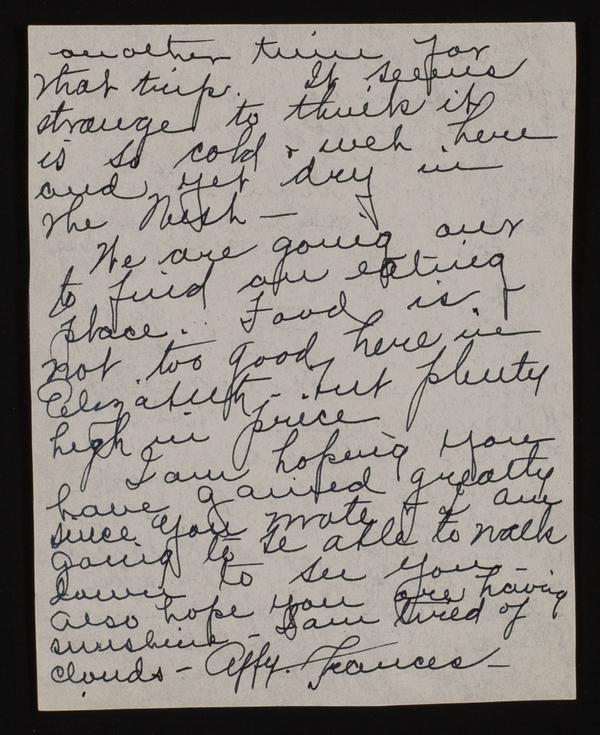 another time for
that trip. It seems
strange to think it
is so cold & wet here
and yet dry in
the West —
We are going out
to find an eating
place. Food is
not too good here in
Elizabeth - but plenty
high in price
I am hoping you
have gained greatly
since you wrote & are
going to be able to walk
down to see you -
also hope you are having
sunshine - I am tired of
clouds - Affy. Frances -